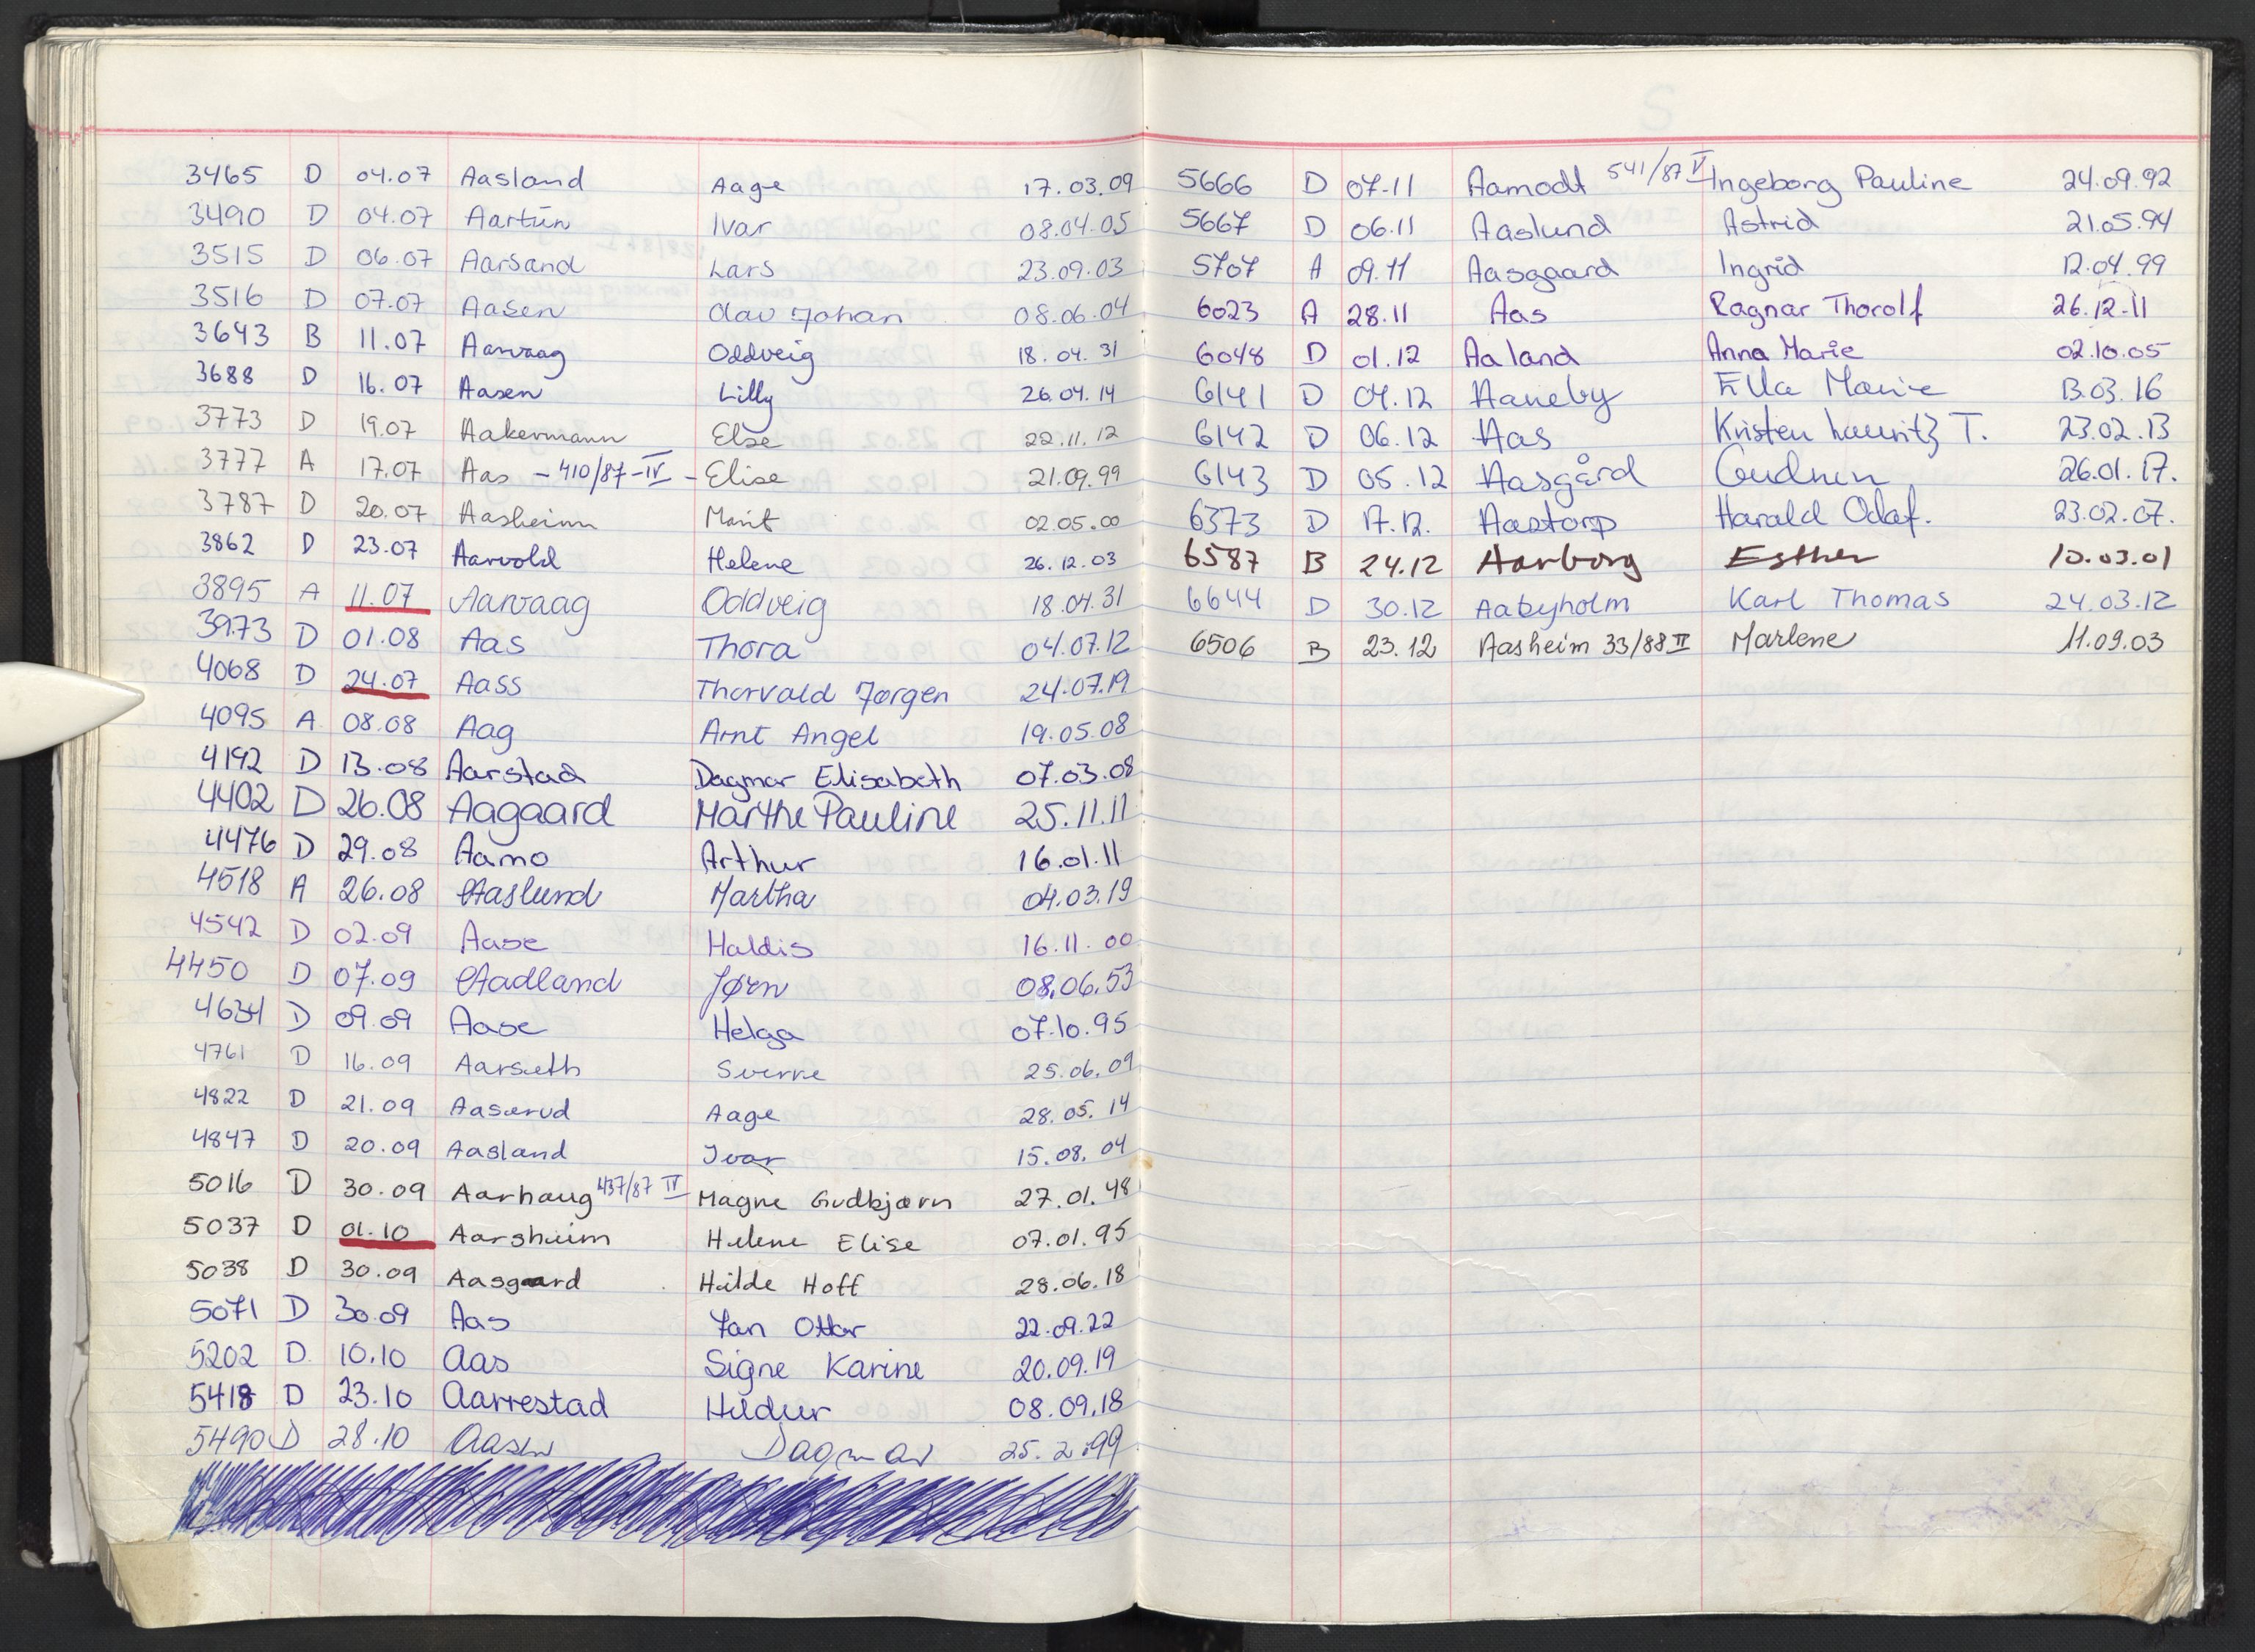 3465 D 04.07 Aasland Aage 17.03.09
3490 D 04.07 Aartún Ivar 08.04.05
3515 D 06.07 Aarsand Lars 23.09.03
3516 D 07.07 Aasen Olav Johan 08.06.04
3643 B 11.07 Aarvaag Oddveig 18.04.31
3688 D 16.07 Aasen Lilly 26.04.14
3773 D 19.07 Aakermann Else 22.11.12
3777 A 17.07 Aas - 410/87 - IV - Elise 21.09.99
3787 D 20.07 Aasheim Marit 02.05.00
3862 D 23.07 Aarvold Helene 26.12.03
3895 A 11.07 Aarvaag Oddveig 18.04.31
3973 D 01.08 Aas Thora 04.07.12
4068 D 24.07 Aass Thorvald Jørgen 24.07.19
4095 A 08.08 Aag Arnt Angel 19.05.08
4192 D 13.08 Aarstad Dagmar Elisabeth 07.03.08
4402 D 26.08 Aagaard Marthe Pauline 25.11.11
4476 D 29.08 Aamo Arthur 16.01.11
4518 A 26.08 Aaslund Martha 04.03.19
4542 D 02.09 Aase Haldis 16.11.00
4450 D 07.09 Aadland Jørn 08.06.53
4634 D 09.09 Aase Helga 07.10.95
4761 D 16.09 Aarseth Sverre 25.06.09
4822 D 21.09 Aaserud Aage 28.05.14
4847 D 20.09 Aasland Ivar 15.08.04
5016 D 30.09 Aarhaug 437/87 IV Magne Gudbjørn 27.01.48
5037 D 01.10 Aarsheim Helene Elise 07.01.95
5038 D 30.09 Aasgaard Hilde Hoff 28.06.18
5071 D 30.09 Aas Jan Ottar 22.09.22
5202 D. 10.10 Aas Signe Karine 20.09.19
5418 D 23.10 Aarrestad Hildur 08.09.18
5490 D 28.10 Aasen Dagmar 25.2.99
5666 D 07.11 Aamodt 541/87 V Ingeborg Pauline 24.09.92
5667 D 06.11 Aaslund Astrid 21.05.94
5707 A 09.11 Aasgaard Ingrid 12.04.99
6023 A 28.11 Aas Ragnar Thorolf 26.12.11
6048 D 01.12 Aaland Anna Marie 02.10.05
6141 D 04.12 Aaneby Ella Marie 13.03.16
6142 D 06.12 Aas Kristen Lauritz T. 23.02.13
6143 D 05.12 Aasgård Gudrun 26.01.17.
6373 D 17.12. Aastorp Harald Olaf. 23.02.07.
6587 B 24.12 Aarborg Esther 10.03.01
6644 D 30.12 Aabyholm Karl Thomas 24.03.12
6506 B 23.12 Aasheim 33/88 II Marlene 11.09.03